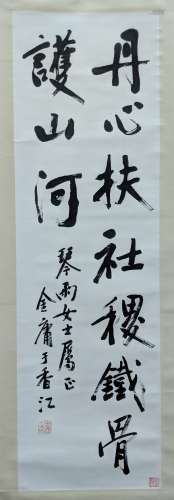 丹心扶社稷鐵骨
護山河
琴雨女士屬正
金庸于香江